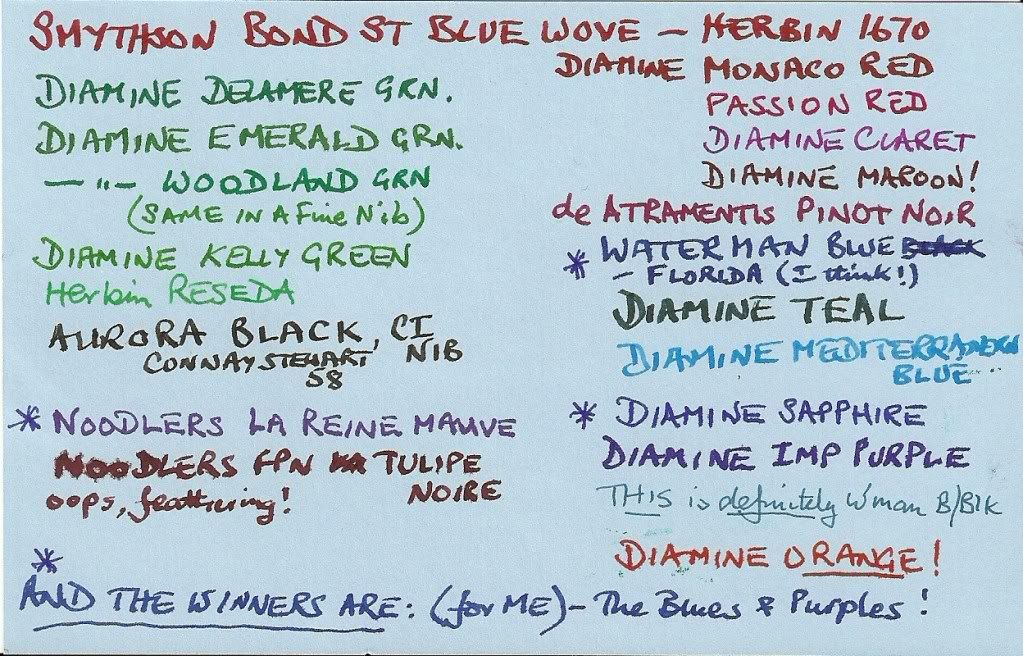 SMYTHSON BOND ST BLUE WOVE – HERBIN 1670
DIAMINE DELAMERE GRN.
DIAMINE EMERALD GRN.
— " — WOODLAND GRN
(SAME IN A Fine Nib)
DIAMINE KELLY GREEN
Herbin RESEDA
AURORA BLACK, CI
NIB
CONWAY STEWART
58
* NOODLERS LA REINE MAUVE
NOODLERS FPN TULIPE
NOIRE
oops, feathering!
DIAMINE MONACO RED
PASSION RED
DIAMINE CLARET
DIAMINE MAROON!
de ATRAMENTIS PINOT NOIR
* WATERMAN BLUE BLACK
– FLORIDA (I think!)
DIAMINE TEAL
DIAMINE MEDITERRANEAN
BLUE
* DIAMINE SAPPHIRE
DIAMINE IMP PURPLE
THIS is definitely W'man B/Blk
DIAMINE ORANGE!
*
AND THE WINNERS ARE: (for ME) – The Blues & Purples!